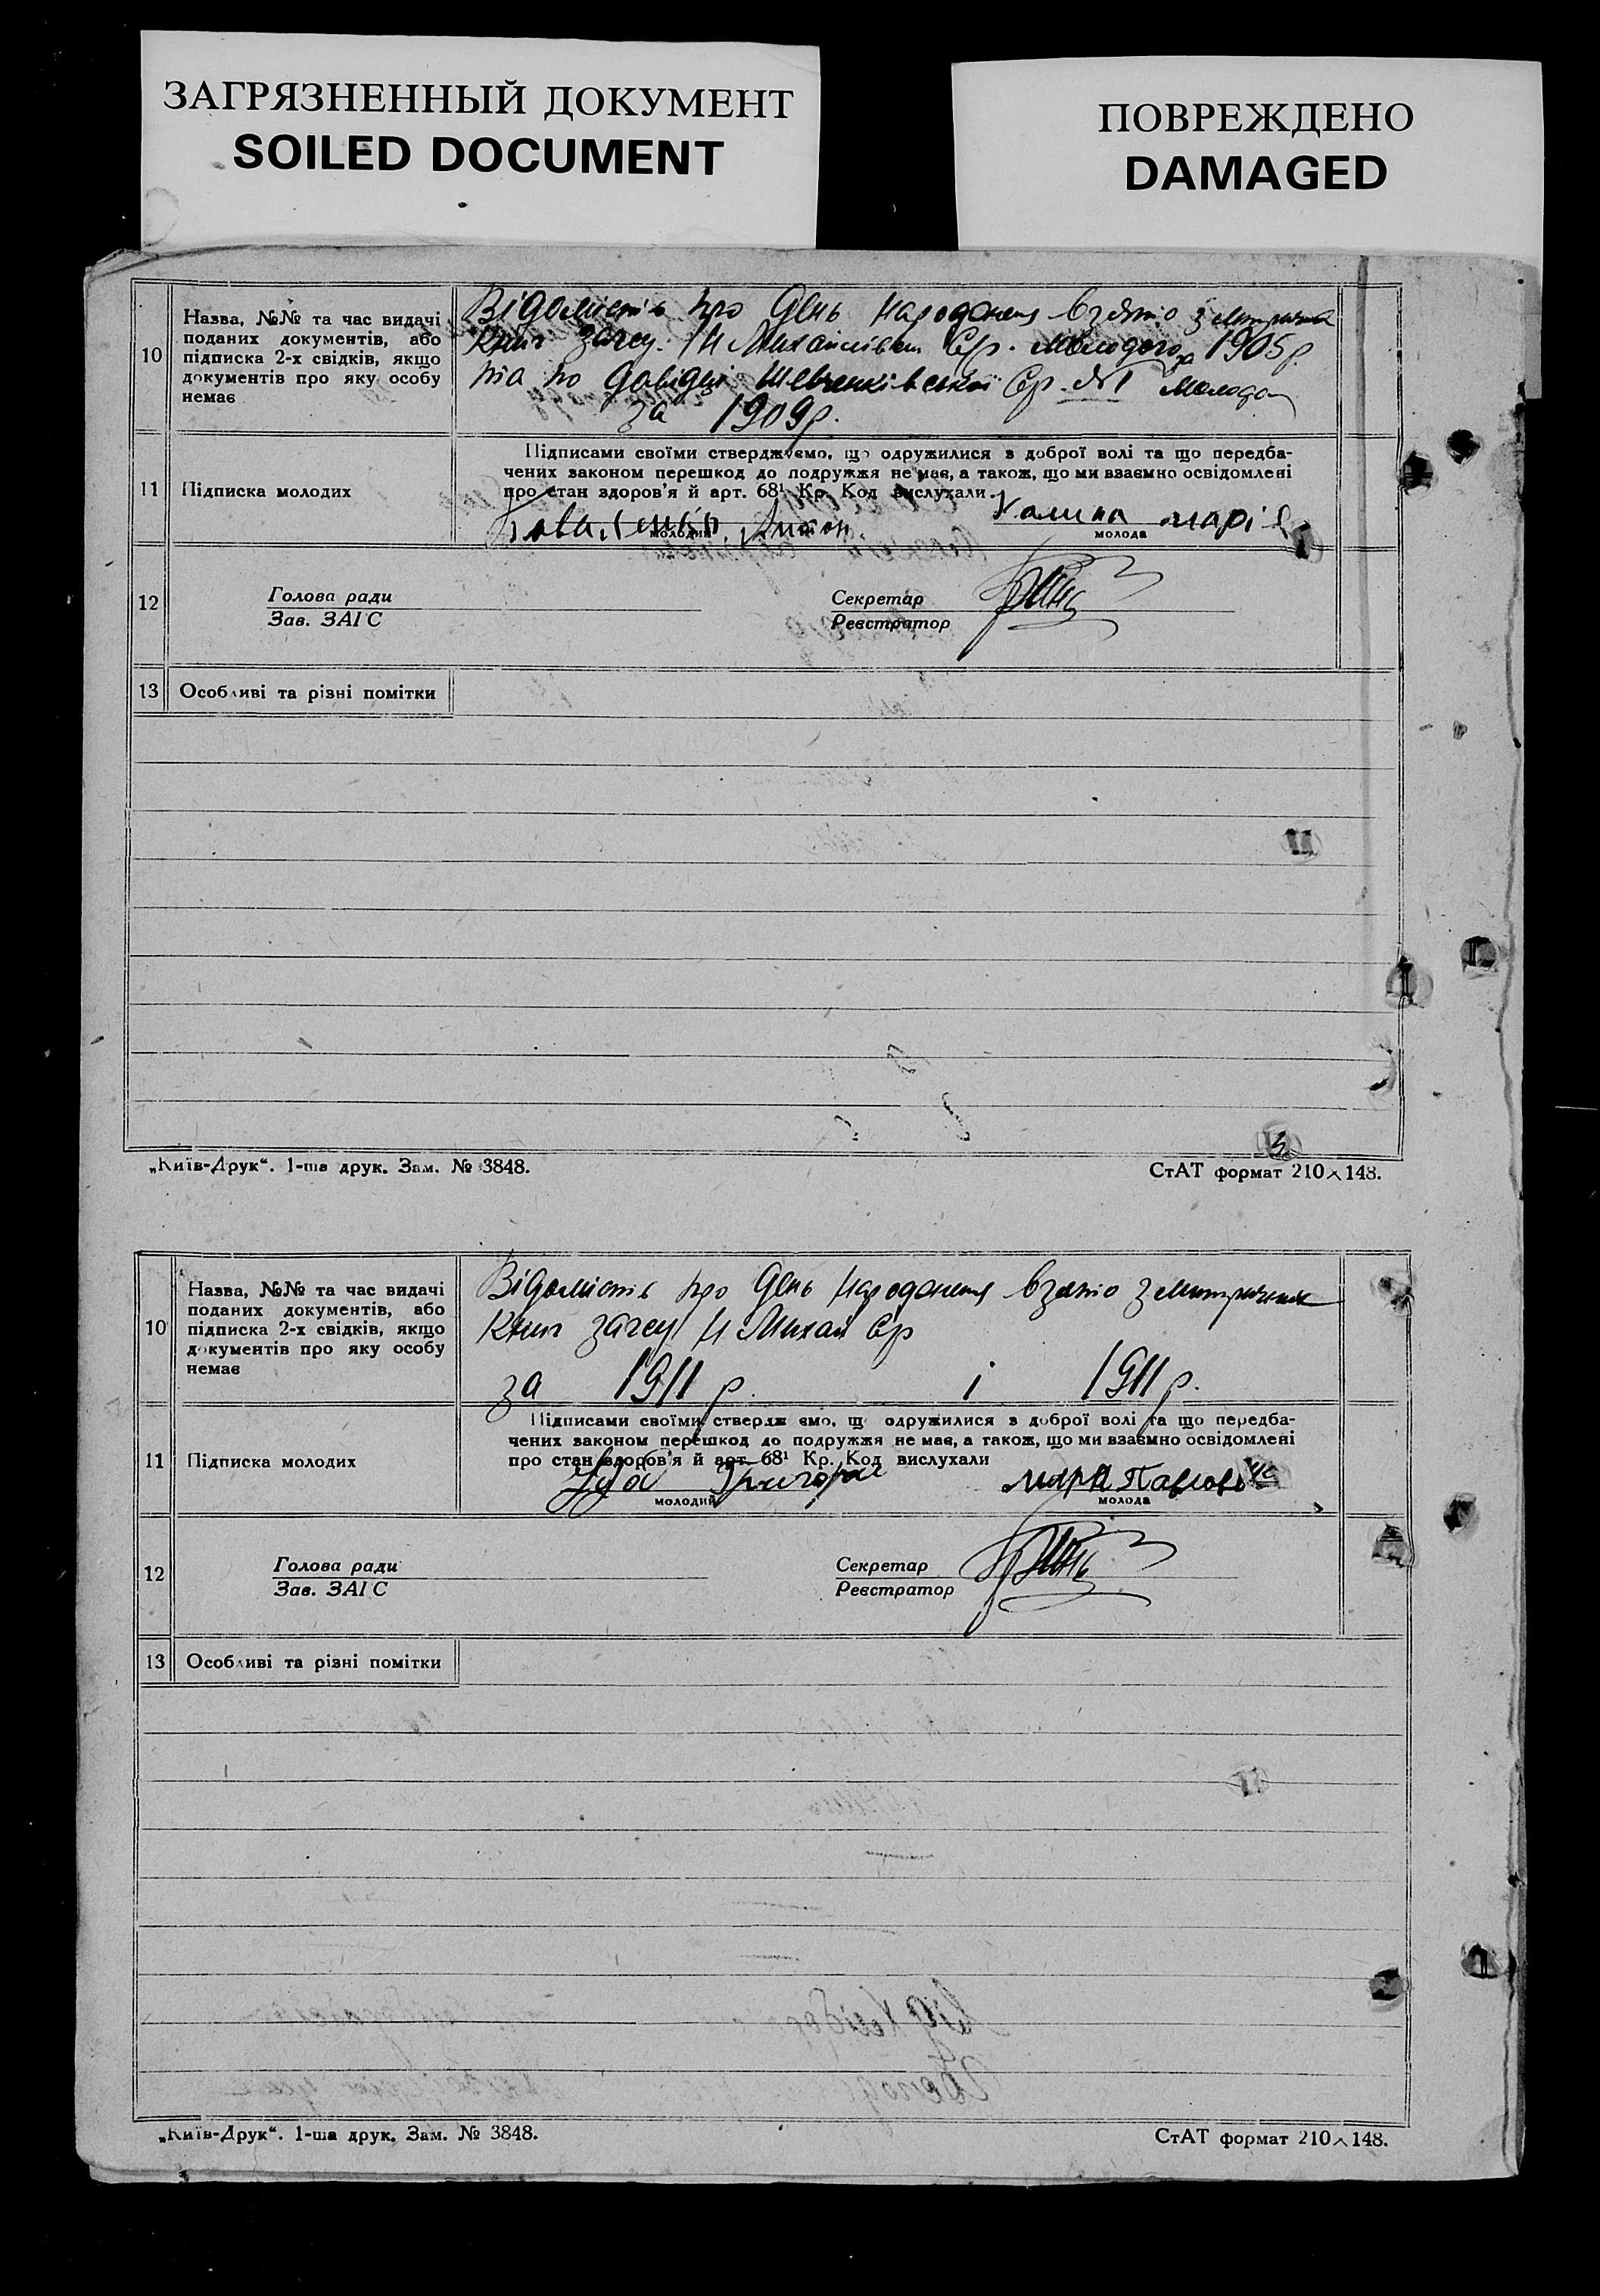 ЗАГРЯЗНЕННЫЙ ДОКУМЕНТ
SOILED DOCUMENT
ПОВРЕЖДЕНО
DAMAGED
10
Назва, №№ та час видачі
поданих документів, або
підписка 2-х свідків, якщо
документів про яку особу
немає
Відомість про день народження взято з метричних
книг загсу. Н Михайлівки С/р. молодого за 1905 р
та по довідці Шевченківської С/р. №1 молода
за 1909 р.
11
Підписка молодих
Підписами своїми стверджуємо, що одружилися з доброї волі та що передба-
чених законом перешкод до подружжя не має, а також, що ми взаємно освідомлені
про стан здоров'я й арт. 68¹ Кр. Код вислухали.
Калина марія
молодий
молода
12
Голова ради
Зав. ЗАГС
Секретар
Реєстратор
13
Особливі та різні помітки
„Київ-Друк“. 1-ша друк. Зам. № 3848.
СтАТ формат 210×148.
10
Назва, №№ та час видачі
поданих документів, або
підписка 2-х свідків, якщо
документів про яку особу
немає
Відомість про день народження взято з метричних
книг загсу Н Михай С/р
за 1911 р. і 1911 р.
11
Підписка молодих
Підписами своїми стверджуємо, що одружилися з доброї волі та що передба-
чених законом перешкод до подружжя не має, а також, що ми взаємно освідомлені
про стан здоров'я й арт. 68¹ Кр. Код вислухали
Григорій
молодий
молода
12
Голова ради
Зав. ЗАГС
Секретар
Реєстратор
13
Особливі та різні помітки
„Київ-Друк“. 1-ша друк. Зам. № 3848.
СтАТ формат 210×148.